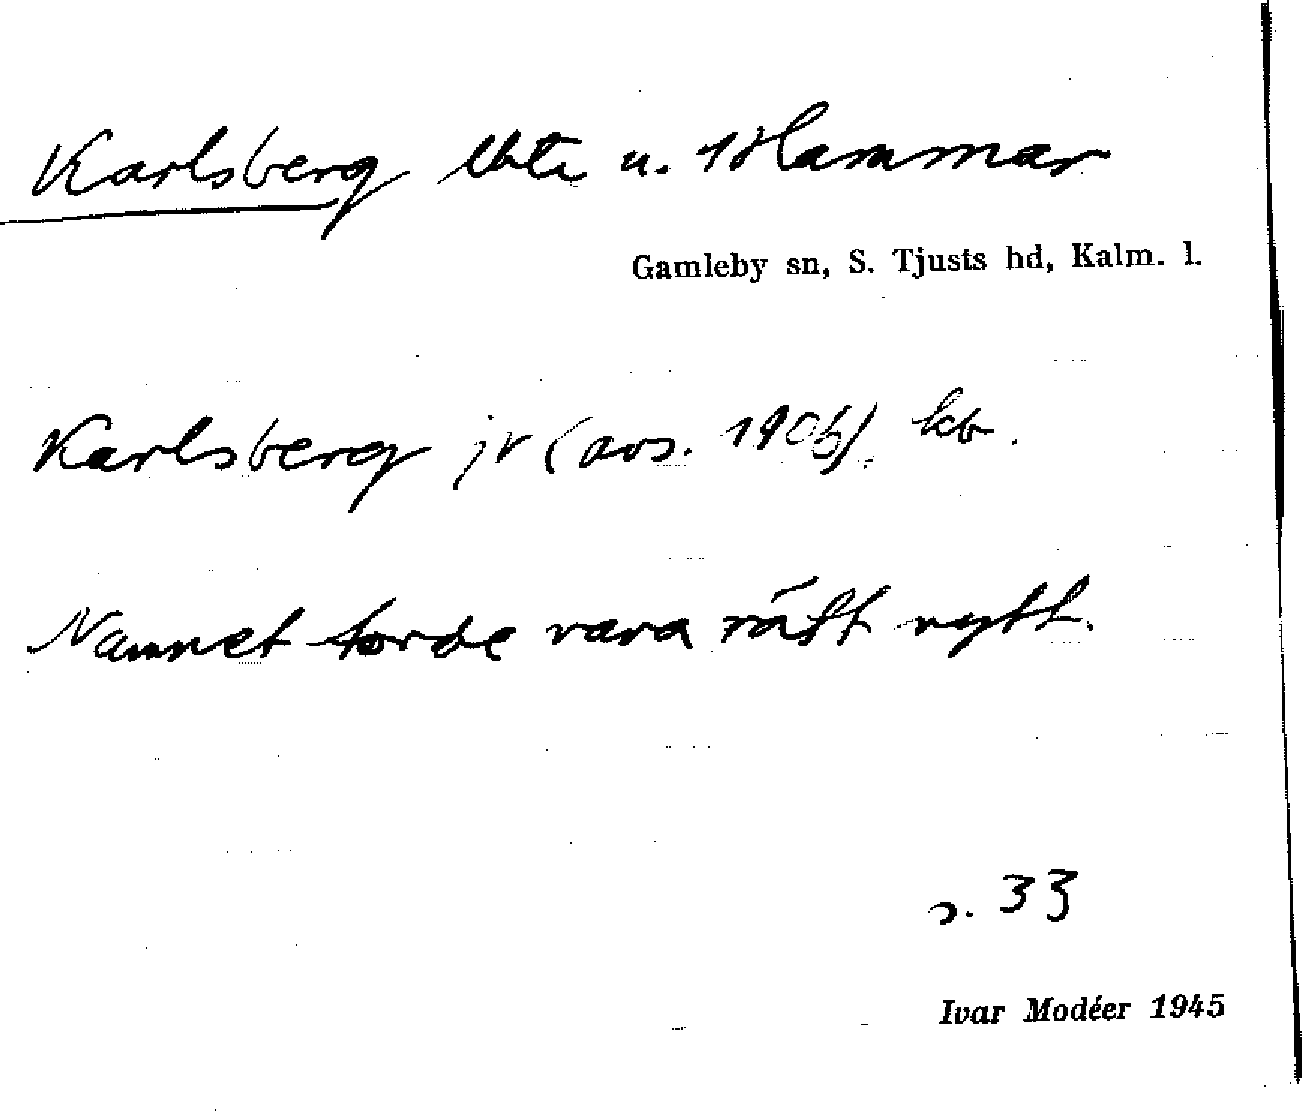 Karlsberg lhte u. Hammar
Gamleby sn, S. Tjusts hd, Kalm. l.
Karlsberg jr (avs. 1905). kb.
Namnet torde vara rätt nytt.
s. 33
Ivar Modéer 1945